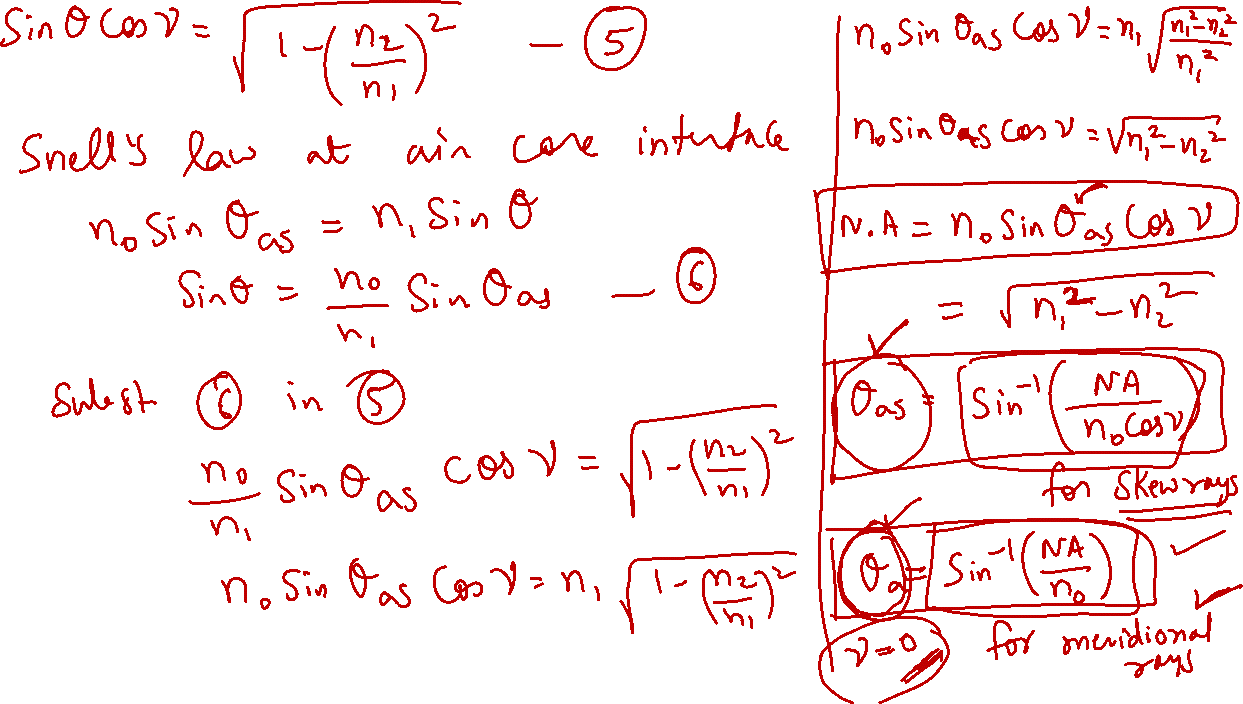 Sinθ Cosν = √(1-(n₂/n₁)²) — ⑤
Snell's law at air core interface
n₀ Sin θas = n₁ Sin θ
Sinθ = n₀/n₁ Sin θas — ⑥
Subst ⑥ in ⑤
n₀/n₁ Sin θas cos ν = √(1-(n₂/n₁)²)
n₀ Sin θas Cos ν = n₁ √(1-(n₂/n₁)²)
n₀ Sin θas Cos ν = n₁ √((n₁²-n₂²)/n₁²)
n₀ Sin θas cos ν = √(n₁²-n₂²)
N.A = n₀ Sin θas Cos ν
= √(n₁²-n₂²)
θas = Sin⁻¹(NA/(n₀ Cosν))
for skew rays
θa = Sin⁻¹(NA/n₀)
ν=0 for meridional
rays